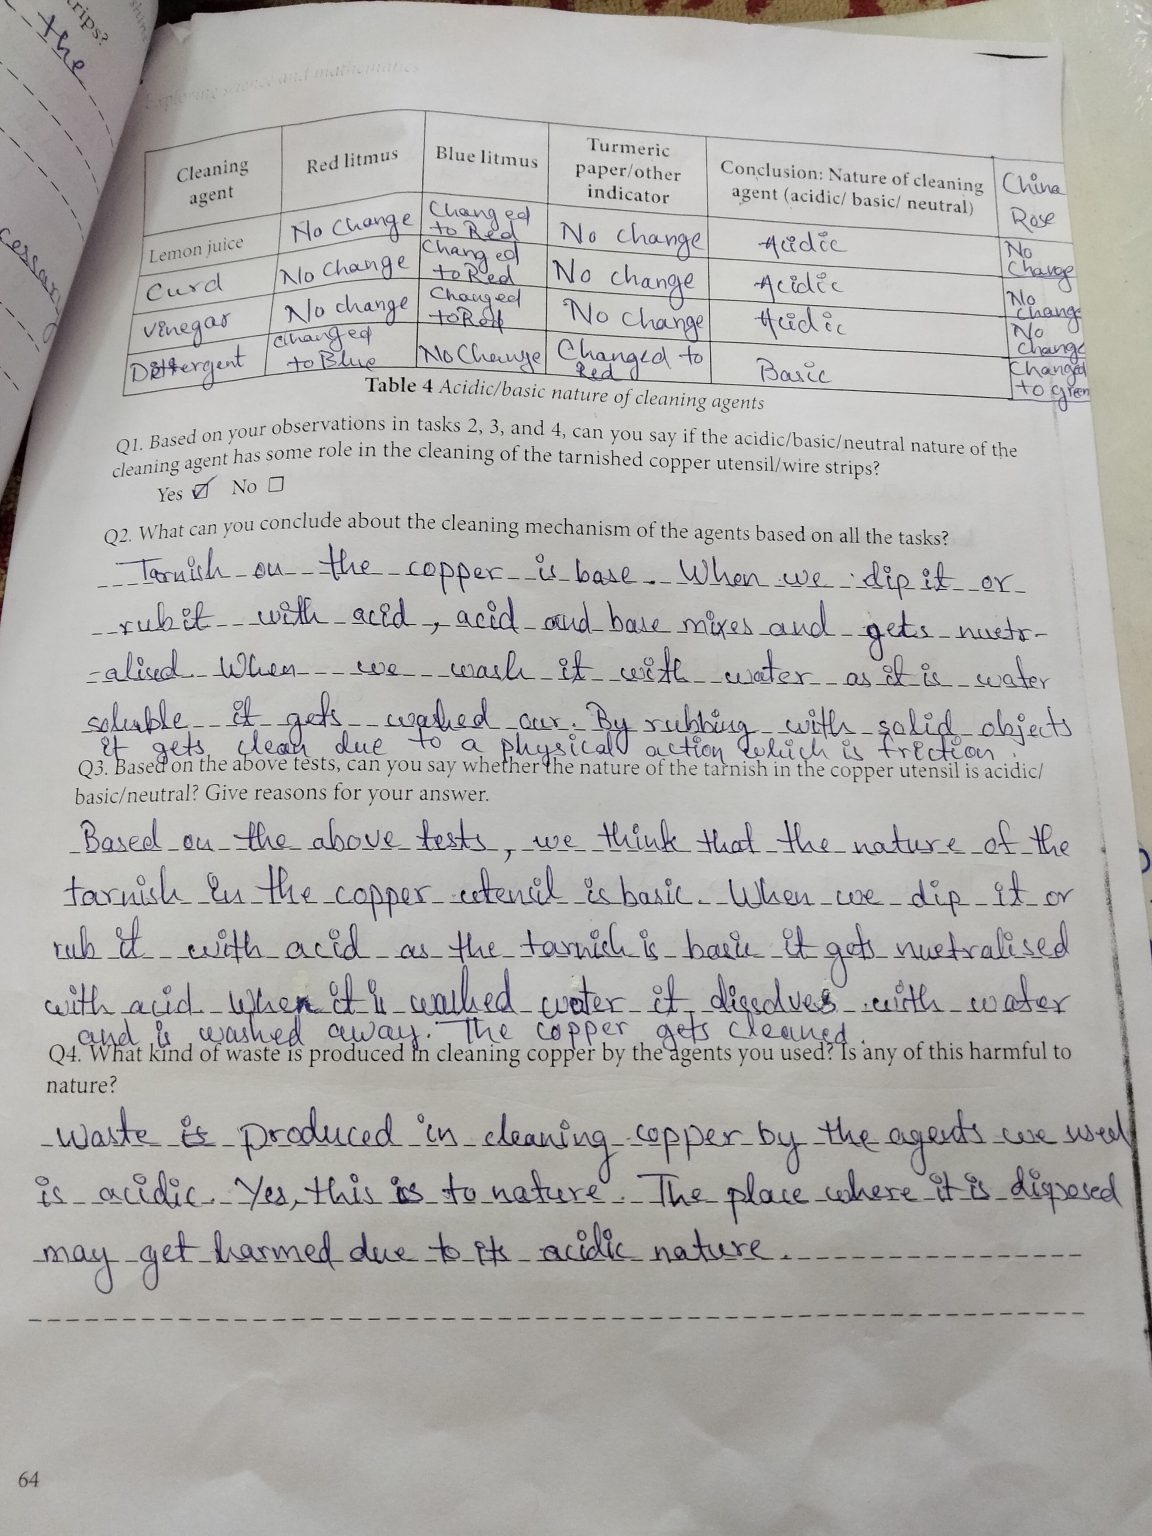 trips?
the
cessary
Exploring science and mathematics
Cleaning agent Red litmus Blue litmus Turmeric paper/other indicator Conclusion: Nature of cleaning agent (acidic/ basic/ neutral) China Rose
Lemon juice No Change Changed to Red No change Acidic No Change
Curd No Change Changed to Red No change Acidic No Change
Vinegar No change Changed to Red No Change Acidic No Change
Detergent Changed to Blue No Change Changed to Red Basic Changed to green
Table 4 Acidic/basic nature of cleaning agents
Q1. Based on your observations in tasks 2, 3, and 4, can you say if the acidic/basic/neutral nature of the
cleaning agent has some role in the cleaning of the tarnished copper utensil/wire strips?
Yes ☑ No ☐
Q2. What can you conclude about the cleaning mechanism of the agents based on all the tasks?
Tarnish on the copper is base. When we dip it or
rub it with acid, acid and base mixes and gets nuetr-
-alised. When we wash it with water as it is water
soluble it gets washed our. By rubbing with solid objects
it gets clean due to a physical action which is friction.
Q3. Based on the above tests, can you say whether the nature of the tarnish in the copper utensil is acidic/
basic/neutral? Give reasons for your answer.
Based on the above tests, we think that the nature of the
tarnish in the copper utensil is basic. When we dip it or
rub it with acid as the tarnish is basic it gets nuetralised
with acid when it is washed water it dissolves with water
and is washed away. The copper gets cleaned.
Q4. What kind of waste is produced in cleaning copper by the agents you used? Is any of this harmful to
nature?
Waste is produced in cleaning copper by the agents we used
is acidic. Yes, this is to nature. The place where it is disposed
may get harmed due to its acidic nature.
64